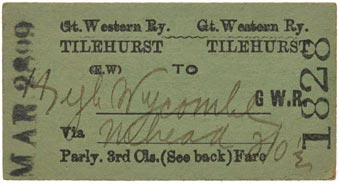 Gt. Western Ry. Gt. Western Ry.
TILEHURST TILEHURST
(E.W) TO
High Wycombe
G W.R
Via Mhead 2/0½
Parly. 3rd Cls. (See back) Fare
MAR 2809
1828